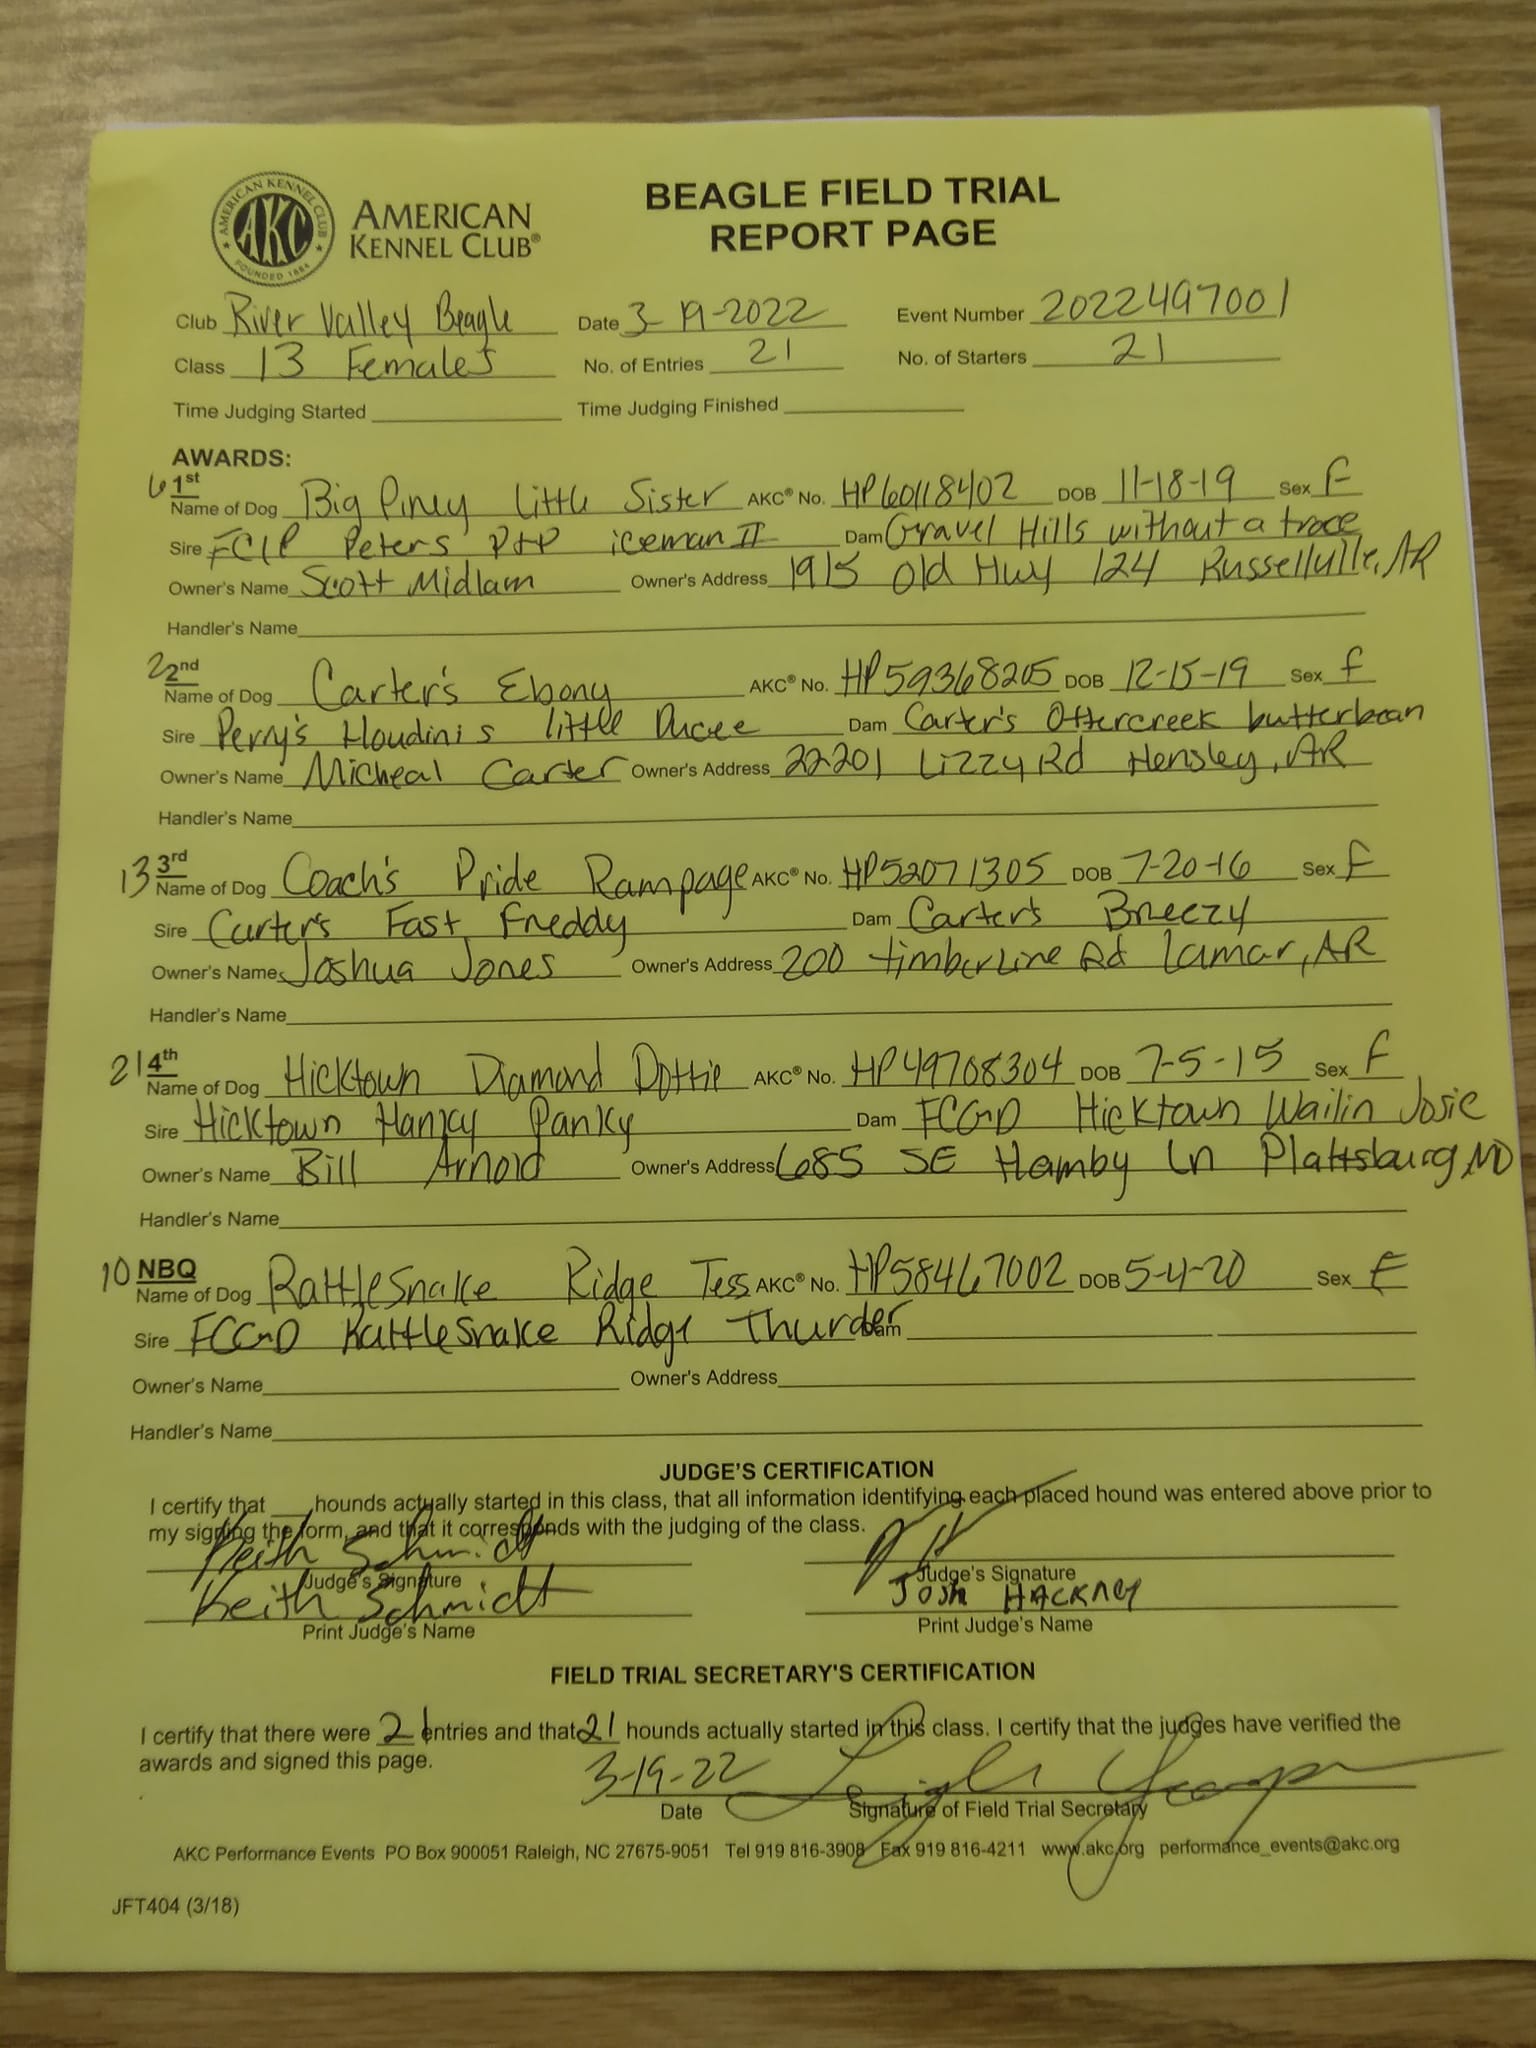 AMERICAN KENNEL CLUB
AKC
FOUNDED 1884
AMERICAN
KENNEL CLUB®
BEAGLE FIELD TRIAL
REPORT PAGE
Club River Valley Beagle Date 3-19-2022 Event Number 2022497001
Class 13 Females No. of Entries 21 No. of Starters 21
Time Judging Started Time Judging Finished
AWARDS:
6 1st
Name of Dog Big Piney Little Sister AKC® No. HP60118402 DOB 11-18-19 Sex F
Sire FCIP Peters PTP iceman II Dam Gravel Hills without a trace
Owner's Name Scott Midlam Owner's Address 1915 Old Hwy 124 Russellville, AR
Handler's Name
2 2nd
Name of Dog Carter's Ebony AKC® No. HP59368205 DOB 12-15-19 Sex F
Sire Perry's Houdini's little Ducee Dam Carter's Ottercreek butterbean
Owner's Name Micheal Carter Owner's Address 22201 Lizzy Rd Hensley, AR
Handler's Name
13 3rd
Name of Dog Coach's Pride Rampage AKC® No. HP52071305 DOB 7-20-16 Sex F
Sire Carter's Fast Freddy Dam Carter's Breezy
Owner's Name Joshua Jones Owner's Address 200 timberLine Rd Lamar, AR
Handler's Name
21 4th
Name of Dog Hicktown Diamond Dottie AKC® No. HP49708304 DOB 7-5-15 Sex F
Sire Hicktown Hanky Panky Dam FCGD Hicktown Wailin Josie
Owner's Name Bill Arnold Owner's Address 685 SE Hamby Ln Plattsburg, MO
Handler's Name
10 NBQ
Name of Dog RattleSnake Ridge Tess AKC® No. HP58467002 DOB 5-4-20 Sex F
Sire FCGD RattleSnake Ridge Thunder Dam
Owner's Name Owner's Address
Handler's Name
JUDGE'S CERTIFICATION
I certify that ___ hounds actually started in this class, that all information identifying each placed hound was entered above prior to
my signing the form, and that it corresponds with the judging of the class.
Keith Schmidt
Judge's Signature Judge's Signature
Keith Schmidt Josh HACKNEY
Print Judge's Name Print Judge's Name
FIELD TRIAL SECRETARY'S CERTIFICATION
I certify that there were 21 entries and that 21 hounds actually started in this class. I certify that the judges have verified the
awards and signed this page.
3-19-22
Date Signature of Field Trial Secretary
AKC Performance Events PO Box 900051 Raleigh, NC 27675-9051 Tel 919 816-3908 Fax 919 816-4211 www.akc.org performance_events@akc.org
JFT404 (3/18)